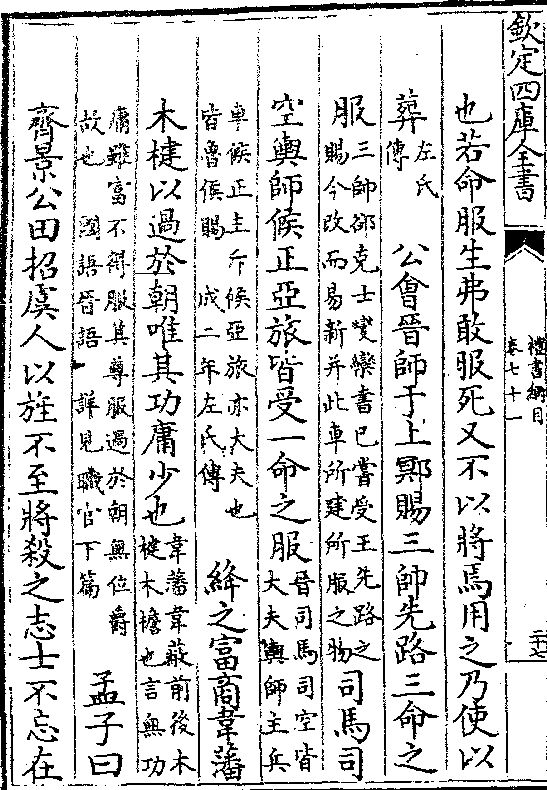 欽定四庫全書
禮書綱目
卷七十一
二十七
也若命服生弗敢服死又不以將焉用之乃使以
葬
左氏
傳
公會晉師于上鄍賜三帥先路三命之
服
三帥郤克士燮欒書已嘗受王先路之
賜今改而易新并此車所建所服之物
司馬司
空輿師候正亞旅皆受一命之服
晉司馬司空皆
大夫輿師主兵
車候正主斥候亞旅亦大夫也
皆魯侯賜 成二年左氏傳
絳之富商韋藩
木楗以過於朝唯其功庸少也
韋藩韋蔽前後木
楗木檐也言無功
庸雖富不得服其尊服過於朝無位爵
故也 國語晉語 詳見職官下篇
孟子曰
齊景公田招虞人以旌不至將殺之志士不忘在